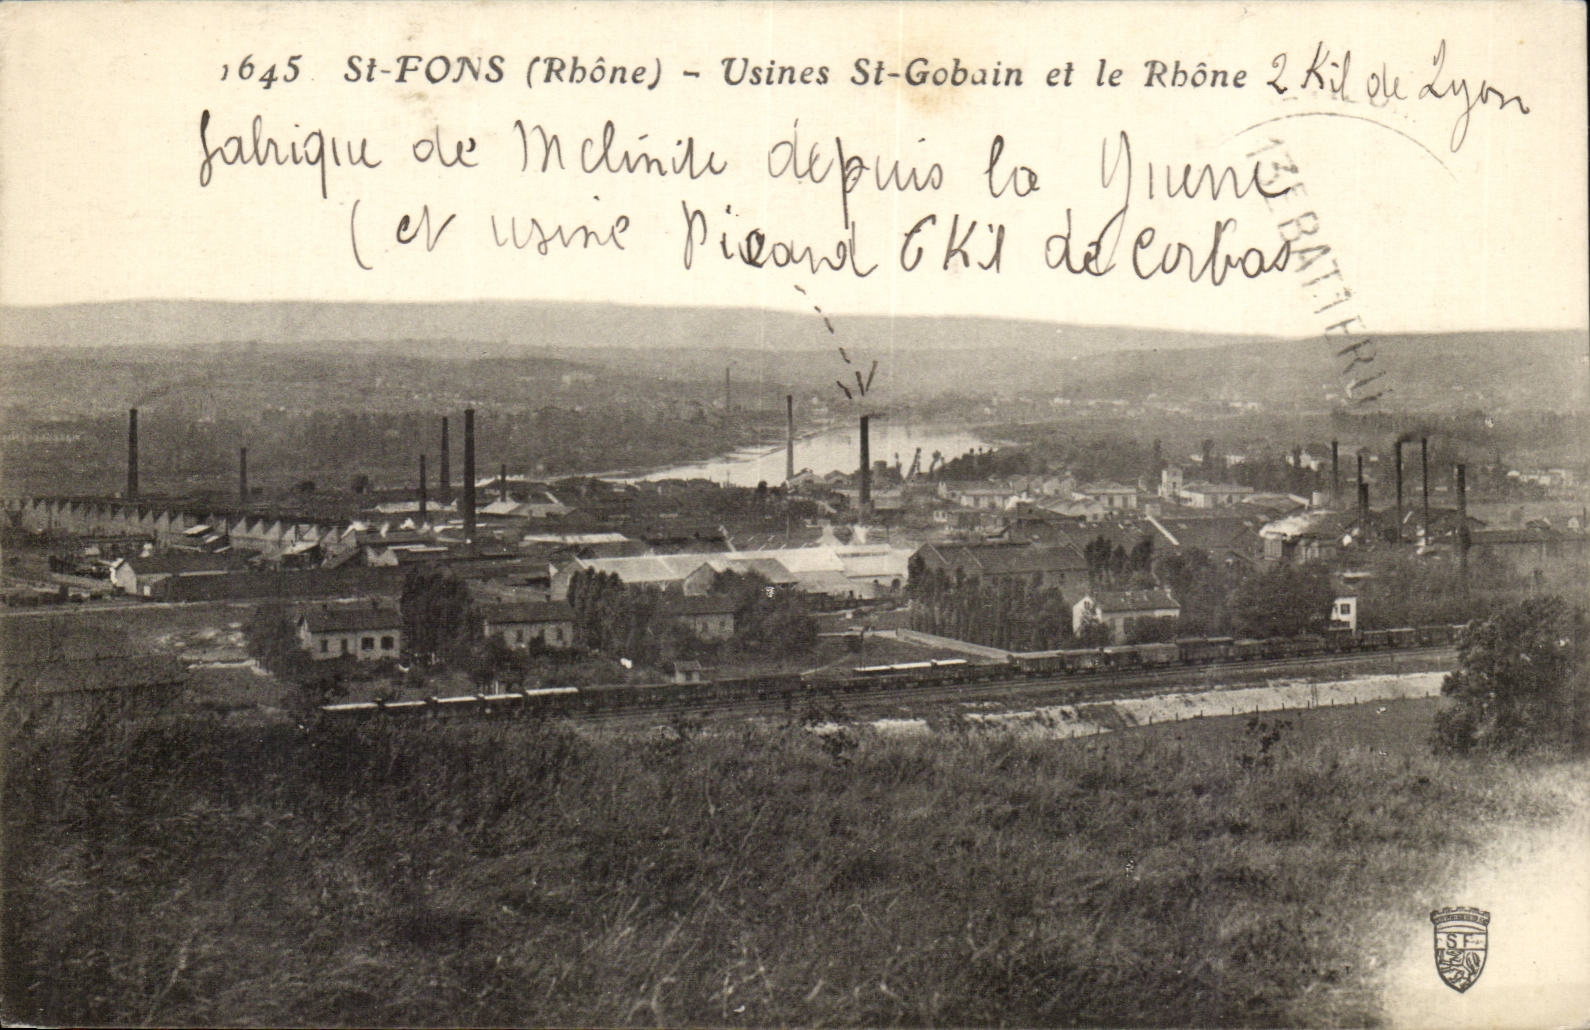 1645 St-FONS (Rhône) - Usines St-Gobain et le Rhône 2 Kil de Lyon
fabrique de Mélinite depuis la Guerre
(et usine Picard 6 Kil de Corbas
13E BATTERIE
SF